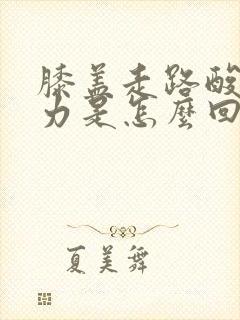 膝盖走路酸
力是怎麼回
夏美舞